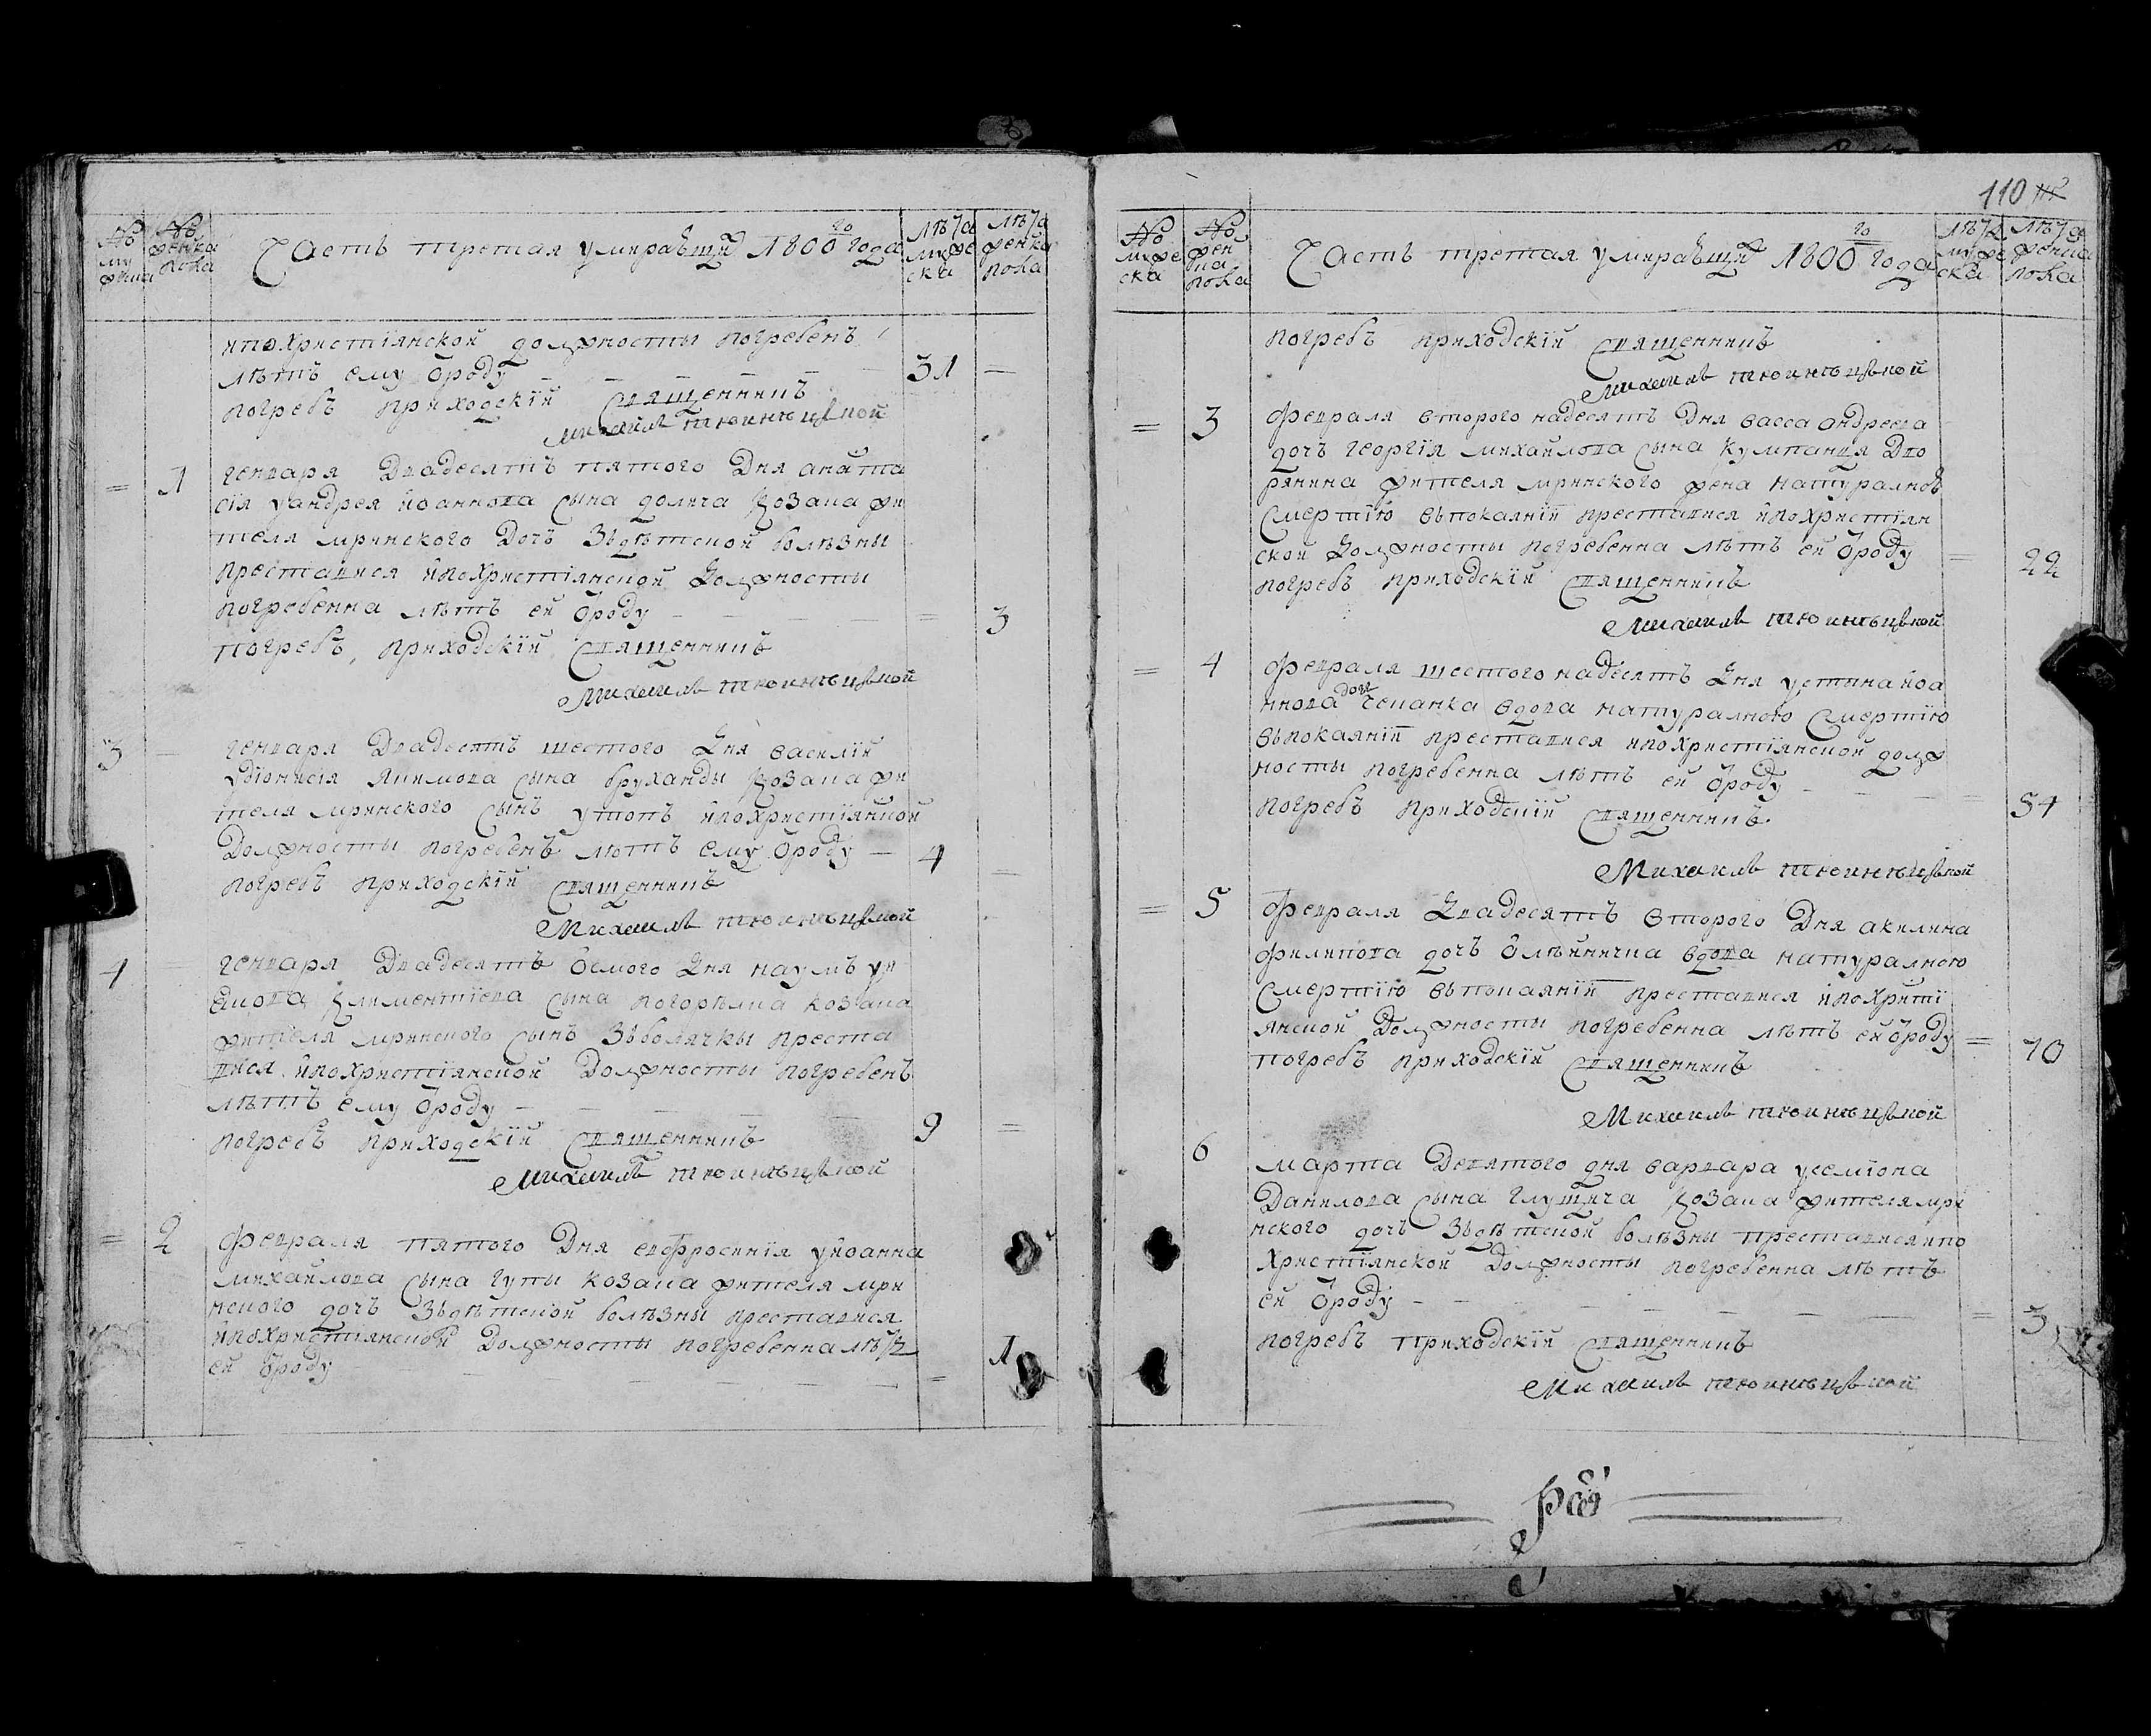 № му феска
№ женска пола
Часть третая умиравших 1800 го года
Лѣта мужеска
Лѣта женска пола
ипохристіянской должносты погребенъ
лѣтъ ему ѿроду — 31 —
погребъ приходскїй Священникъ
Михаилъ
= 1 генваря двадесятъ пятого дня анаста
сія уандрея иоаннова сына долича козака жи
теля мринского дочъ зъдѣтской болѣзны
преставися ипохристіянской должносты
погребенна лѣтъ ей ѿроду — = 3
погребъ приходскїй Священникъ
Михаилъ
3 — генваря двадесятъ шестого дня василїй
удіонисія якимова сына бруханды козака жи
теля мринского сынъ утопъ ипохристіянской
должносты погребенъ лѣтъ ему ѿроду — 4 =
погребъ приходскїй Священникъ
Михаилъ
4 генваря двадесятъ осмого дня наумъ уя
кова климентіева сына погорѣлка козака
жителя мринского сынъ зъболячкы преста
вися ипохристіянской должносты погребенъ
лѣтъ ему ѿроду — 9 =
погребъ приходскїй Священникъ
Михаилъ
= 2 февраля пятого дня евфросинїя уиоанна
михайлова сына гупы козака жителя мри
нского дочъ зъдѣтской болѣзны преставися
ипохристіянской должносты погребенна лѣтъ
ей ѿроду — = 1
110
№ мужеска
№ женска пола
Часть третая умиравших 1800 го года
Лѣта мужеска
Лѣта женска пола
погребъ приходскїй Священникъ
Михаилъ
= 3 февраля второго надесятъ дня васса андреева
дочъ георгїя михайлова сына кумпанця дво
рянина жителя мринского жена натуралною
смертїю въпокаянїи преставися ипохристіян
ской должносты погребенна лѣтъ ей ѿроду = 22
погребъ приходскїй Священникъ
Михаилъ
= 4 февраля шестого надесятъ дня устына иоа
ннова дочъ чепанка вдова натуралною смертїю
въпокаянїи преставися ипохристіянской долж
носты погребенна лѣтъ ей ѿроду — = 54
погребъ приходскїй Священникъ
Михаилъ
= 5 февраля двадесятъ второго дня акилина
филипова дочъ олѣйничка вдова натуралною
смертїю въпокаянїи преставися ипохристі
янской должносты погребенна лѣтъ ей ѿроду = 70
погребъ приходскїй Священникъ
Михаилъ
6 марта девятого дня варвара усемїона
данилова сына глущича козака жителя мри
нского дочъ зъдѣтской болѣзны преставися ипо
христіянской должносты погребенна лѣтъ
ей ѿроду — = 3
погребъ приходскїй Священникъ
Михаилъ